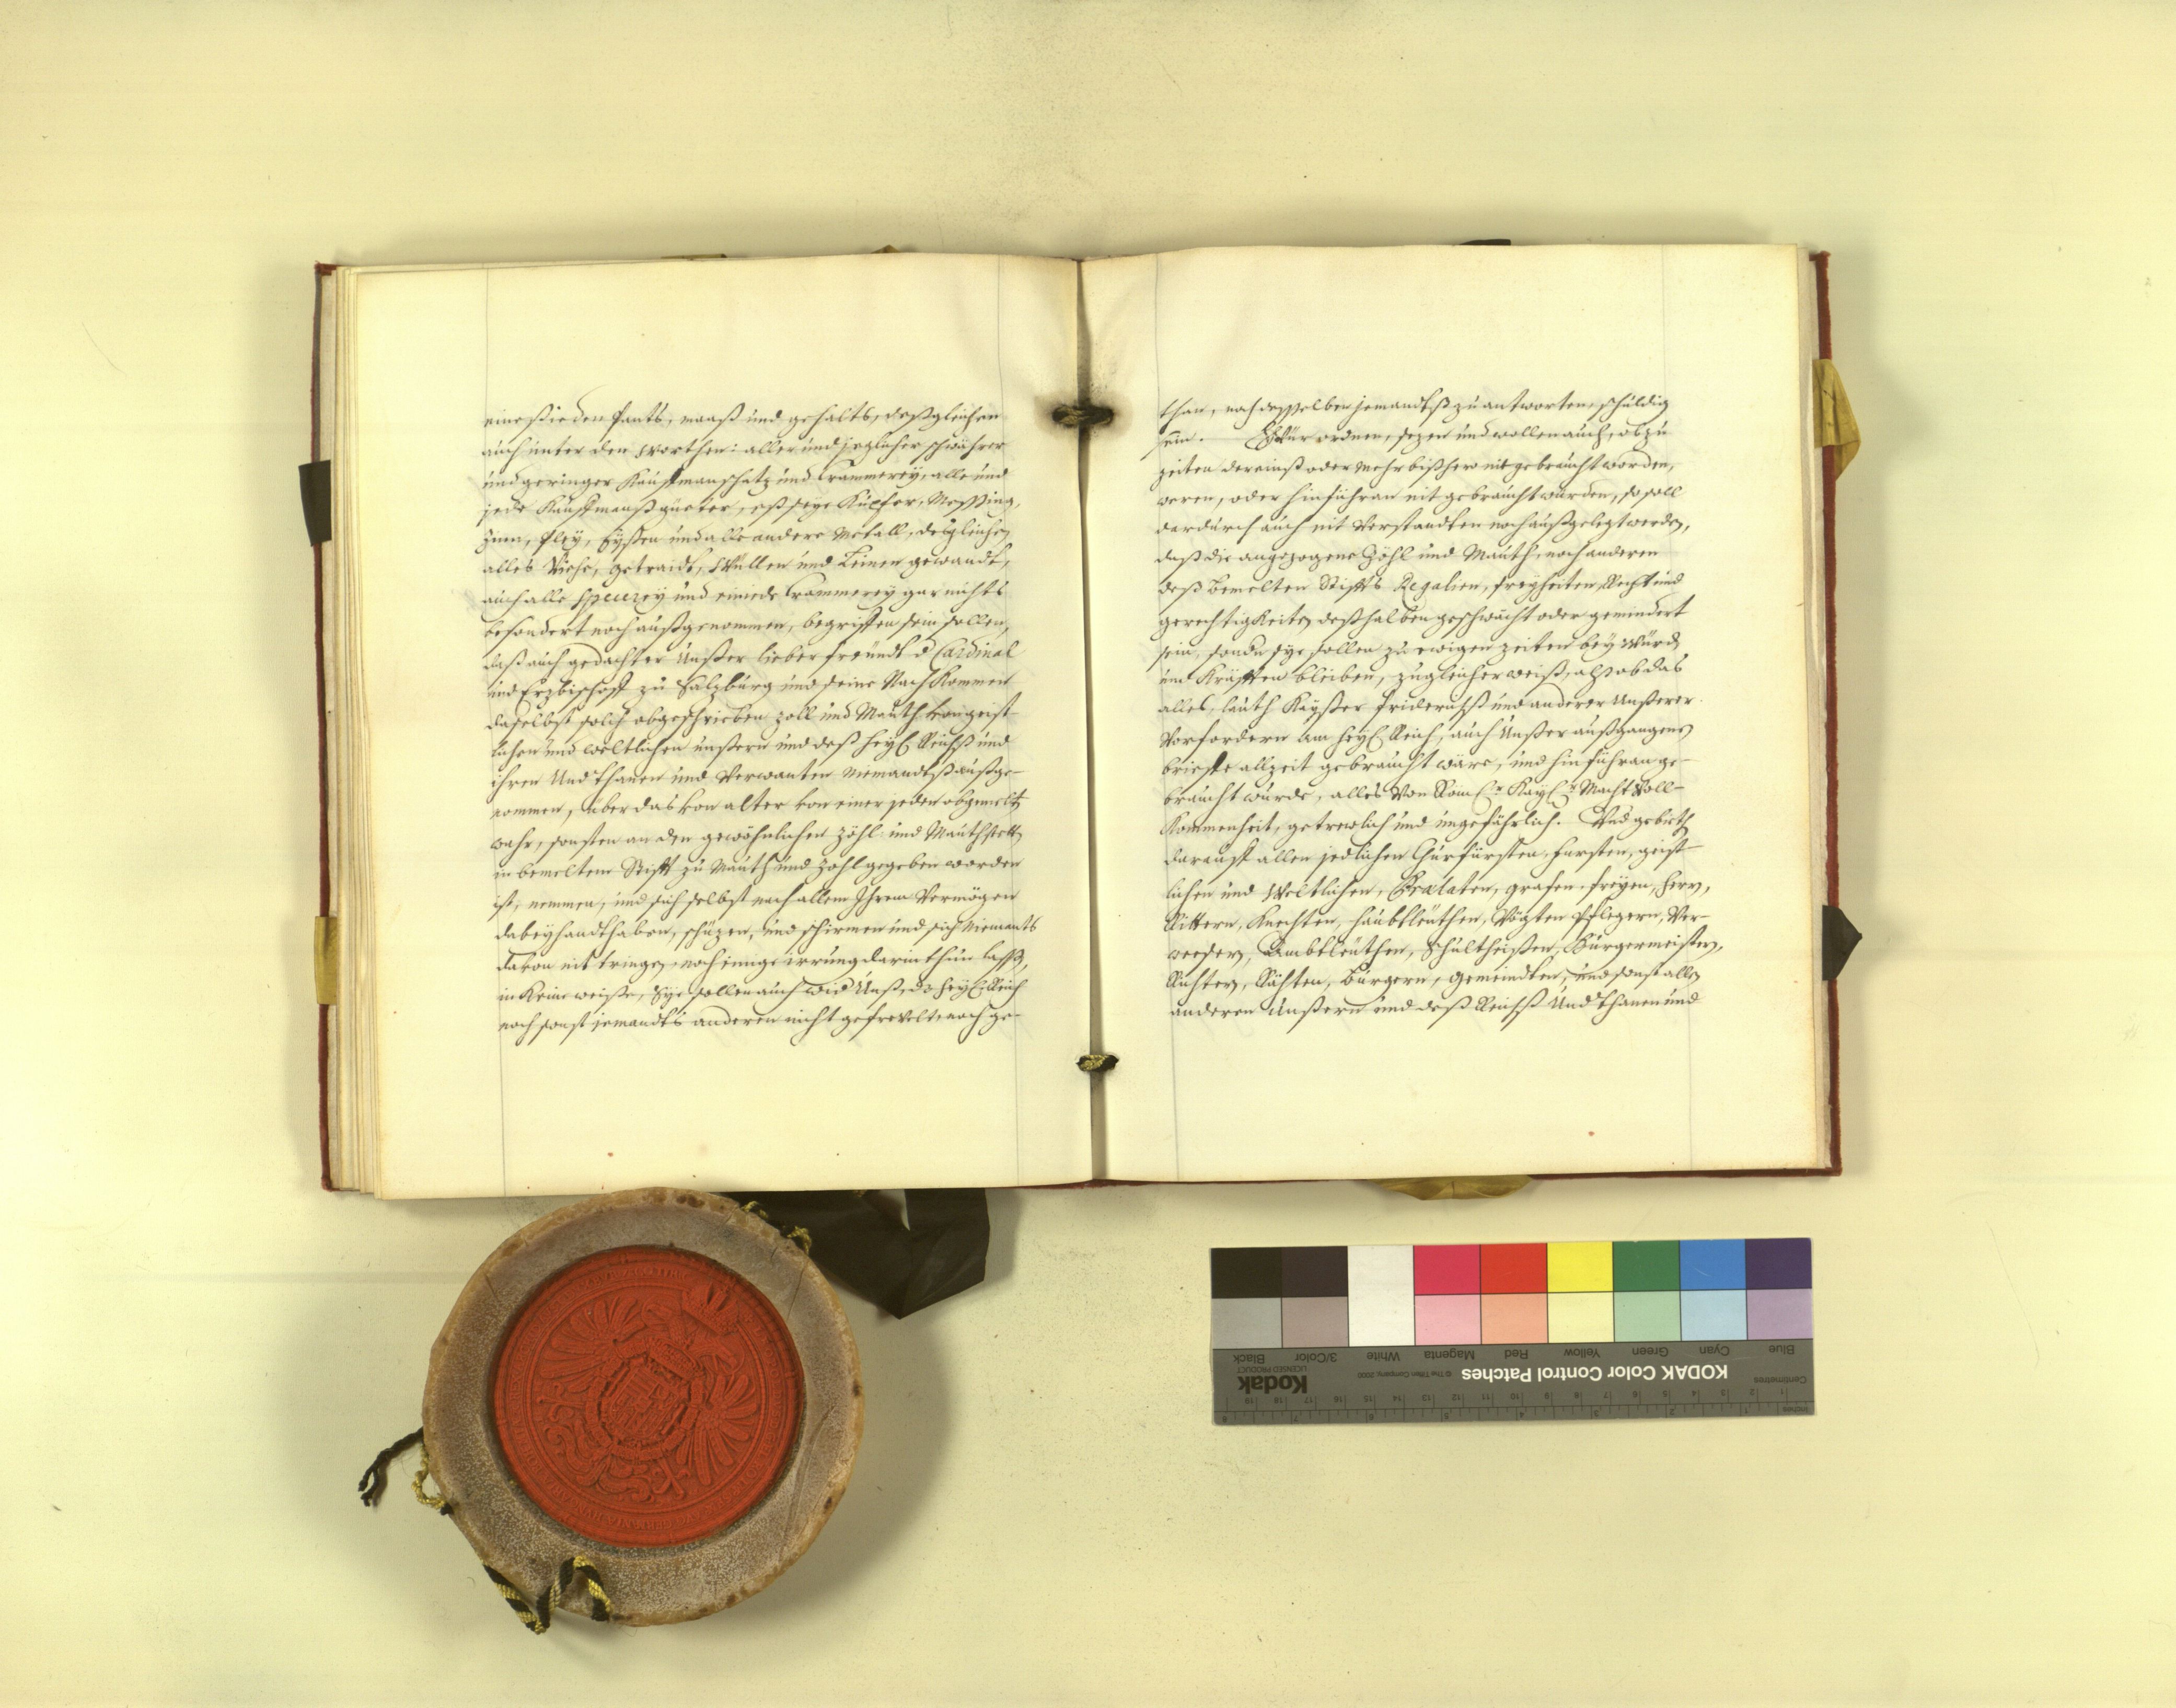 eines ieden sants, maaß und gehalts, deßgleichen
auch unter den worthen: aller und jeglicher schwährer
und geringer Kauffmanschatz und Crammerey, alle und
jede Kauffmanß güeter, eß seye Kupfer, Messing,
Zinn, Pley, Eyssen und alle andere Metall, deßgleichen
alles Viehe, getraidt, Wullen und Leinen gewandt,
auch alle Specerey und Crammerey gar nichts
besondert noch außgenommen, begriffen sein sollen,
daß auch gedachter Unßer lieber freündt d Cardinal
und Erzbischoff zu Salzburg und seine Nach Kommen
daselbst solch obgeschrieben zoll und Mauth von geist-
lichen und weltlichen unßern und deß Heyl Reichß und
ihren Underthanen und Verwanten niemandtß außge-
nommen, über das von alter von einer jeden obgemelt
wahr, sonsten an den gewöhnlichen Zöhl und Mauthstett
in bemeltem Stifft zu Mauth und Zohl gegeben worden
ist, nemmen, und sich selbst nach allem Ihrem Vermögen
dabey handthaben, schüzen, und schirmen und sich niemants
davon nit tringen noch einige irrung darin thun lassen,
in keine weiße, Sye sollen auch wid Unß, dz Heyl Reich
noch sonst jemandts anderen nicht gefrevelt noch ge-
than, noch desselben jemandtß zu antworten schuldig
sein. Wür ordnen, sezen und wollen auch, ob zu
zeiten der einß oder mehr bißhero nit gebraucht worden,
weren, oder hinführan nit gebraucht würden, so soll
dardurch auch nit Verstandten noch außgelegt werden,
daß die angezogene Zöhl und Mauth, noch anderen
deß bemelten Stiffts Regalien, freyheiten, Recht und
gerechtigkeiten deßhalben geschwächt oder gemindert
sein, sonder sye sollen zu ewigen zeiten bey würd
und Kräfften bleiben, zu gleicher weiß, alß ob das
alles, lauth Kayßer Friderichß und anderer Unßerer
Vorfordern am Heyl Reich, auch Unßer außgangens
brieffe allzeit gebraucht wäre, und hinführan ge-
braucht wurde, alles Von Röml.r Kayl.r Macht Voll-
kommenheit, getrewlich und ungefährlich. Und gebieth
darauff allen jedlichen Churfürsten, Fürsten, geist-
lichen und Weltlichen, Prälaten, grafen, freyen, herrn,
Rittern, Knechten, haubtleüthen, Vögten Pflegern, Ver-
wesern, Ambtleüthen, Schultheißen, Burgermeistern,
Richtern, Räthen, Bürgern, Gemeindten, und sonst allen
anderen Unßern und deß Reichß Underthanen und
KODAK Color Control Patches
© The Tiffen Company, 2000
Kodak
LICENSED PRODUCT
Blue Cyan Green Yellow Red Magenta White 3/Color Black
Centimetres
Inches